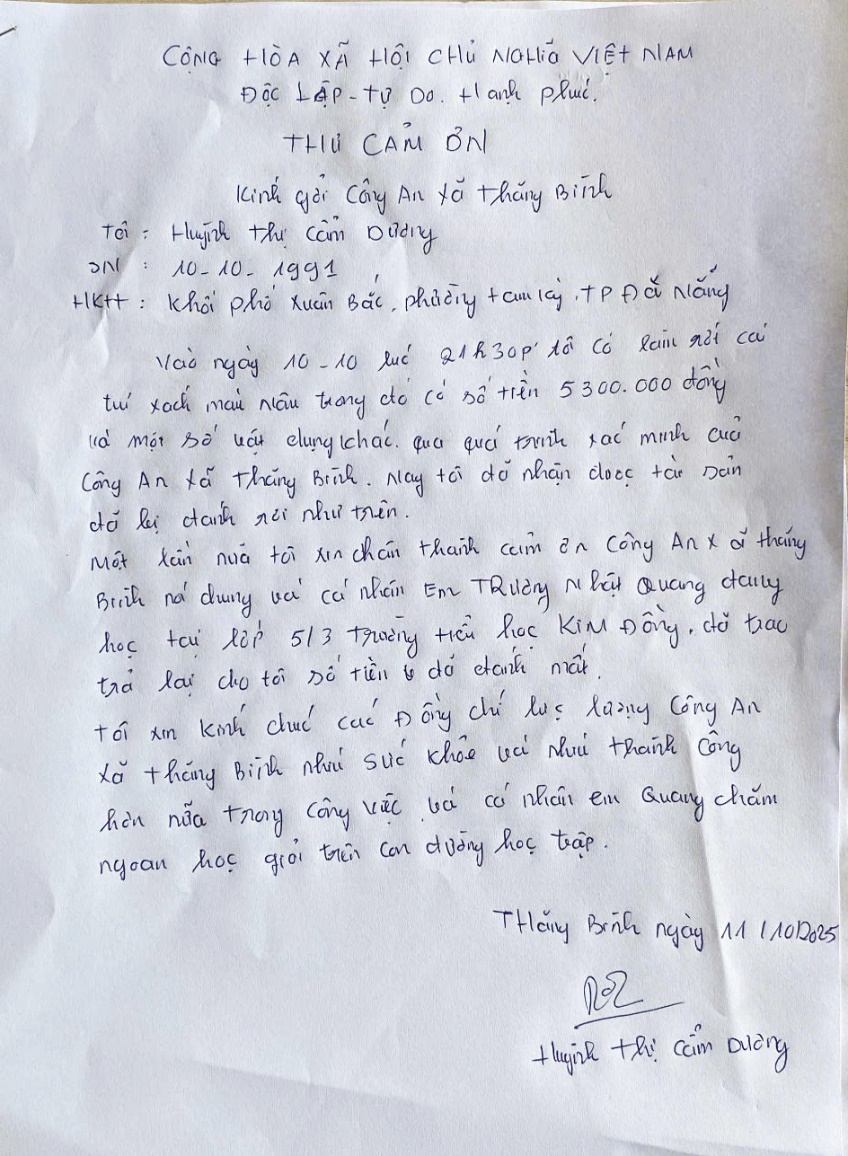 CỘNG HÒA XÃ HỘI CHỦ NGHĨA VIỆT NAM
ĐỘC LẬP - TỰ DO. Hạnh phúc.
THƯ CẢM ƠN
Kính gởi Công An xã Thăng Bình
Tôi : Huỳnh Thị Cẩm Dương
SN : 10-10-1991
HKTT : Khối phố Xuân Bắc, phường Tam Kỳ, TP Đà Nẵng
Vào ngày 10-10 lúc 21h30p' tôi có làm rơi cái
túi xách màu nâu trong đó có số tiền 5300.000 đồng
và một số vật dụng khác. qua quá trình xác minh của
Công An xã Thăng Bình. Nay tôi đã nhận được tài sản
đã bị đánh rơi như trên.
Một lần nữa tôi xin chân thành cảm ơn Công An xã Thăng
Bình nói chung và cá nhân Em TRương Nhật Quang đang
học tại lớp 5/3 trường tiểu học KIM ĐỒNG, đã trao
trả lại cho tôi số tiền đã đánh mất.
Tôi xin kính chúc các Đồng chí lực lượng Công An
xã Thăng Bình như sức khỏe và như thành công
hơn nữa trong công việc và cá nhân em Quang chăm
ngoan học giỏi trên con đường học tập.
THăng Bình ngày 11/10/2025
Huỳnh Thị Cẩm Dương